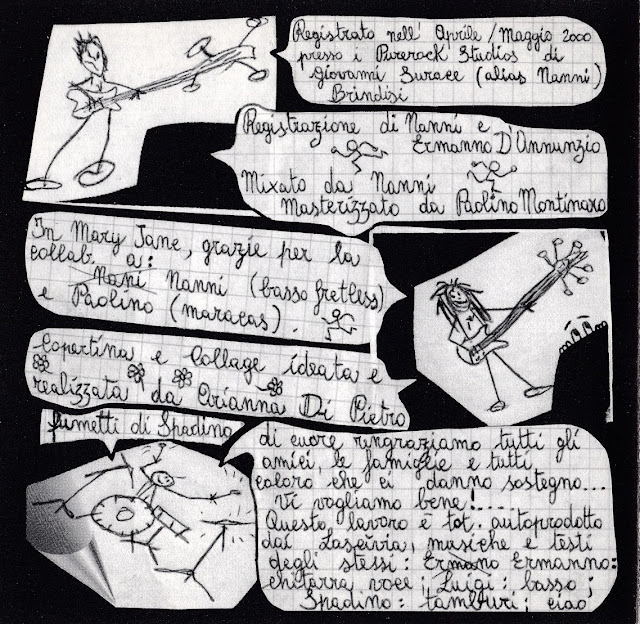 Registrato nell' Aprile/Maggio 2000
presso i Purerock Studios di
Giovanni Surace (alias Nanni)
Brindisi
Registrazione di Nanni e
Ermanno D'Annunzio
Mixato da Nanni
Masterizzato da Paolino Montinaro
In Mary Jane, grazie per la
collab. a:
Nani Nanni (basso fretless)
e Paolino (maracas).
Copertina e Collage ideata e
realizzata da Arianna Di Pietro
fumetti di Spadino
di cuore ringraziamo tutti gli
amici, le famiglie e tutti
coloro che ci danno sostegno...
Vi vogliamo bene!...
Questo lavoro è tot. autoprodotto
dai Lascivia, musiche e testi
degli stessi: Ermano Ermanno:
chitarra voce; Luigi: basso;
Spadino: tamburi; ciao